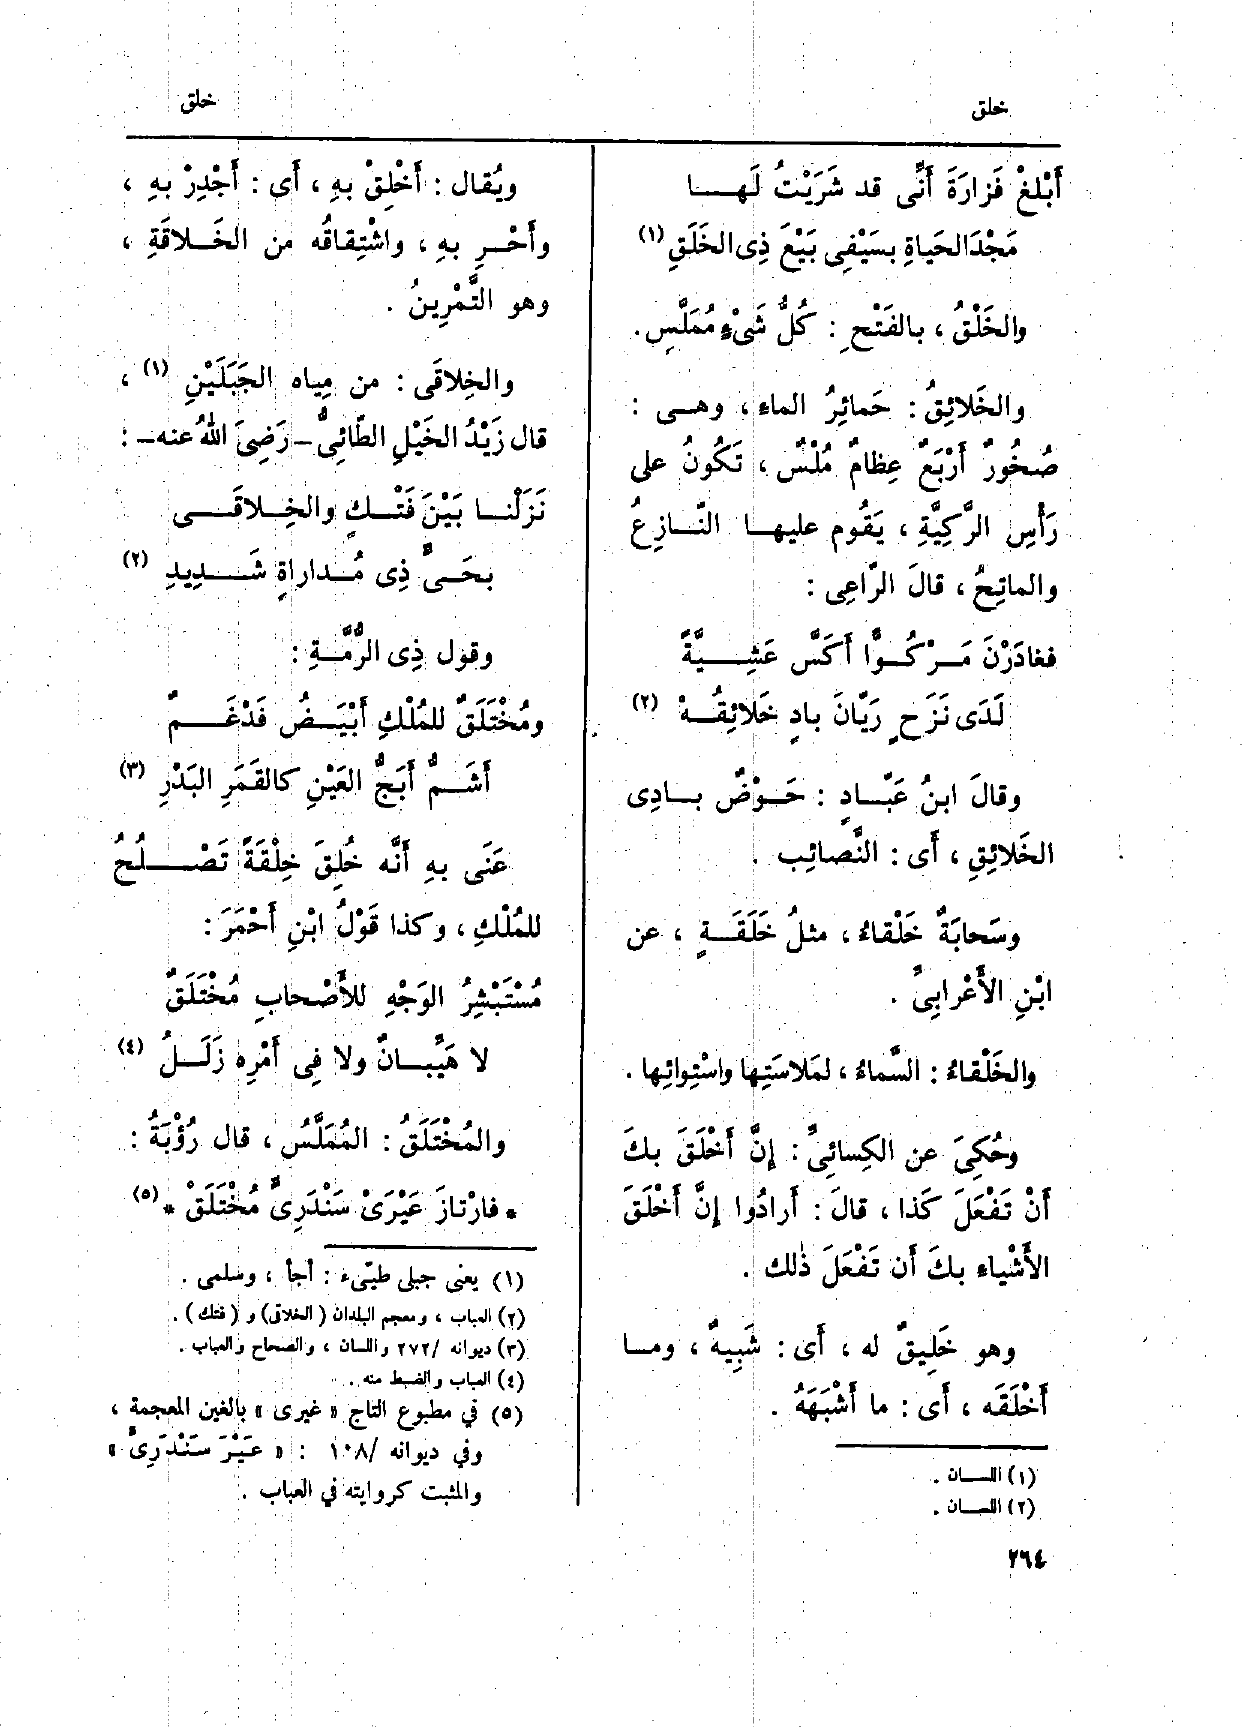 خلق
خلق
أَبْلِغْ فَزارَةَ أَنِّى قد شَرَيْتُ لَهـــا
مَجْدَ الحَياةِ بسَيْفِى بَيْعَ ذِى الخَلَقِ (١)
والخَلْقُ ، بالفَتْحِ : كُلُّ شَىْءٍ مُمَلَّسٍ.
والخَلائِقُ : حَمائِرُ الماء ، وهــى :
صُخُورٌ أَرْبَعٌ عِظامٌ مُلْسٌ ، تَكُونُ على
رَأْسِ الرَّكِيَّةِ ، يَقُوم عليهــا النّــازِعُ
والماتِحُ ، قالَ الرّاعِى :
فغادَرْنَ مَــرْكُــوًّا أَكَسَّ عَشِـــيَّةً
لَدَى نَزَحٍ رَيّانَ بادٍ خَلائِقُــهْ (٢)
وقالَ ابنُ عَبّــادٍ : حَــوْضٌ بــادِى
الخَلائِقِ ، أَى : النَّصائِب .
وسَحابَةٌ خَلْقاءُ ، مثلُ خَلَقَــةٍ ، عن
ابْنِ الأَعْرابِىِّ .
والخَلْقاءُ : السَّماءُ ، لمَلاسَتِها واسْتِوائِها .
وحُكِىَ عن الكِسائِىِّ : إِنَّ أَخْلَقَ بكَ
أَنْ تَفْعَلَ كَذا ، قالَ : أَرادُوا إِنَّ أَخْلَقَ
الأَشْياءِ بكَ أَن تَفْعَلَ ذٰلك .
وهو خَلِيقٌ له ، أَى : شَبِيهٌ ، ومــا
أَخْلَقَه ، أَى : ما أَشْبَهَهُ .
(١) اللســان .
(٢) اللســان .
٢٦٤
ويُقال : أَخْلِقْ بهِ ، أَى : أَجْدِرْ بهِ ،
وأَحْــرِ بهِ ، واشْتِقاقُه من الخَــلاقَةِ ،
وهو التَّمْرِينُ .
والخِلاقَى : من مِياه الجَبَلَيْنِ (١) ،
قال زَيْدُ الخَيْلِ الطّائِىُّ - رَضِىَ اللهُ عنه - :
نَزَلْنــا بَيْنَ فَتْــكٍ والخِــلاقَــى
بحَــىٍّ ذِى مُــداراةٍ شَـــدِيدِ (٢)
وقول ذِى الرُّمَّــةِ :
ومُخْتَلَقٌ للمُلْكِ أَبْيَــضُ فَدْغَــمٌ
أَشَــمُّ أَبَجُّ العَيْنِ كالقَمَرِ البَدْرِ (٣)
عَنَى بهِ أَنَّه خُلِقَ خِلْقَةً تَصْــلُحُ
للمُلْكِ ، وكذا قَوْلُ ابْنِ أَحْمَرَ :
مُسْتَبْشِرُ الوَجْهِ للأَصْحابِ مُخْتَلَقٌ
لا هَيِّبــانٌ ولا فِى أَمْرِه زَلَــلُ (٤)
والمُخْتَلَقُ : المُمَلَّسُ ، قال رُؤْبَةُ :
* فارْتازَ عَيْرَىْ سَنْدَرِىٍّ مُخْتَلَقْ * (٥)
(١) يعني جبلى طيّىء : أجأ ، وسلمى .
(٢) العباب ، ومعجم البلدان (الخلاق) و (فتك) .
(٣) ديوانه /٢٧٢ واللسان ، والصحاح والعباب .
(٤) العباب والضبط منه .
(٥) في مطبوع التاج « غيرى » بالغين المعجمة ،
وفي ديوانه /١٠٨ : « عَيْرَ سَنْدَرِىٍّ »
والمثبت كروايته في العباب .